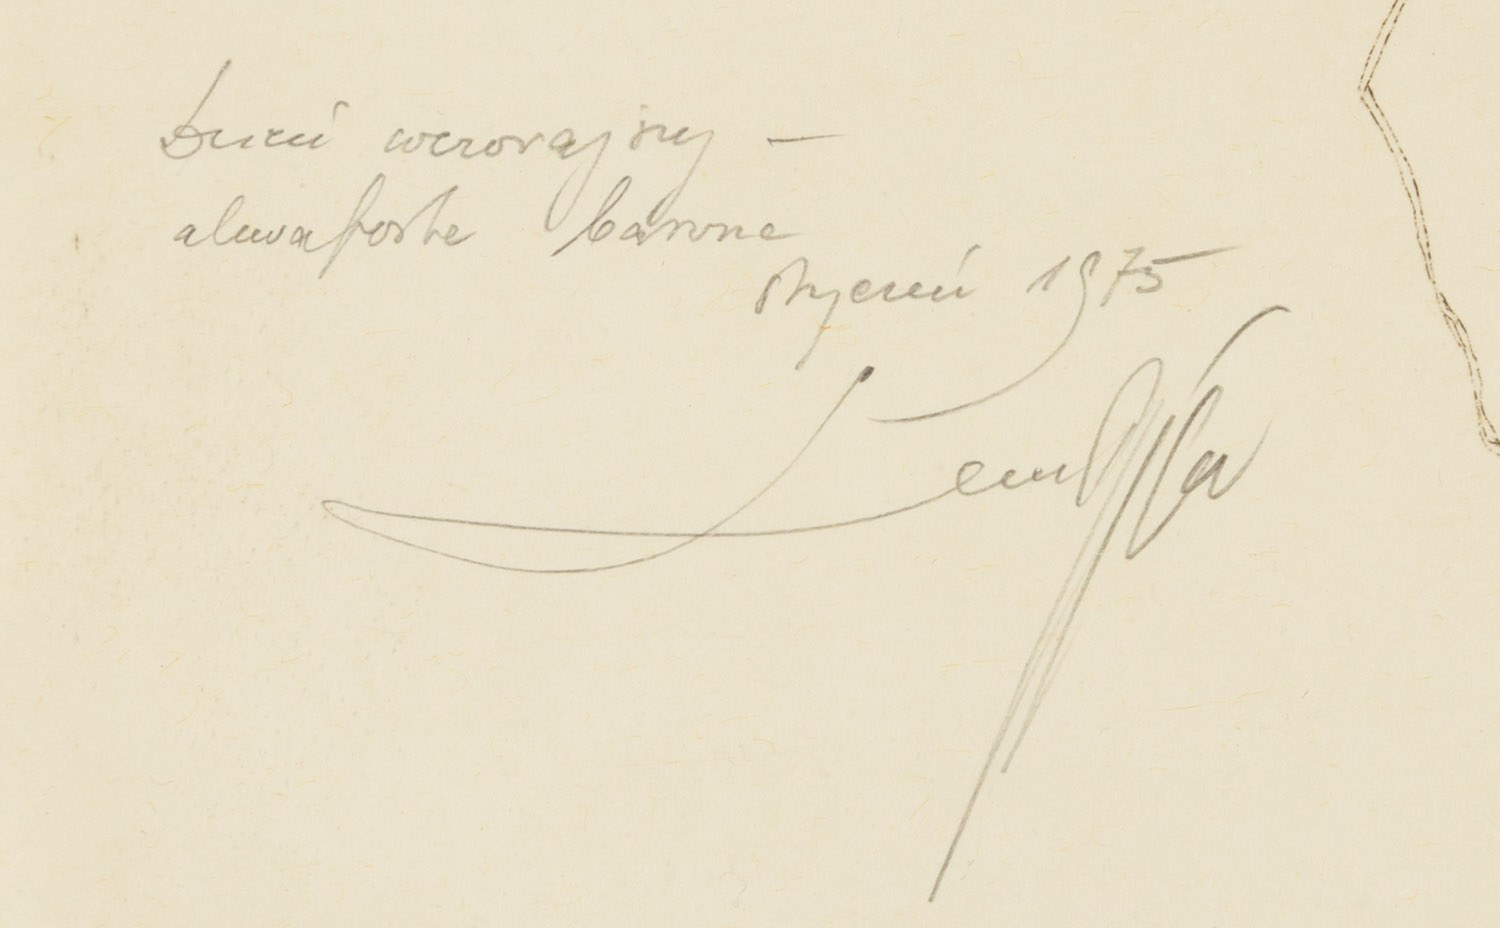 Dzień wczorajszy –
akwaforta barwna
styczeń 1975